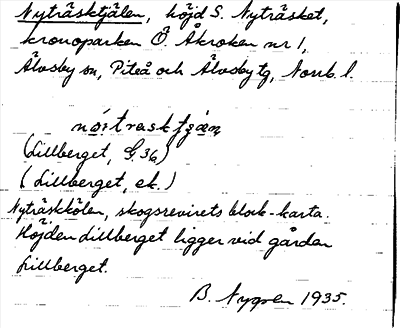 Nyträsktjälen, höjd S. Nyträsket,
kronoparken Ö. Åkroken nr 1,
Älvsby sn, Piteå och Älvsby tg, Norrb. l.
(Lillberget, G. 36)
(Lillberget, ek.)
Nyträskkölen, skogsrevirets block-karta.
Höjden Lillberget ligger vid gården
Lillberget.
B. Nygren 1935.